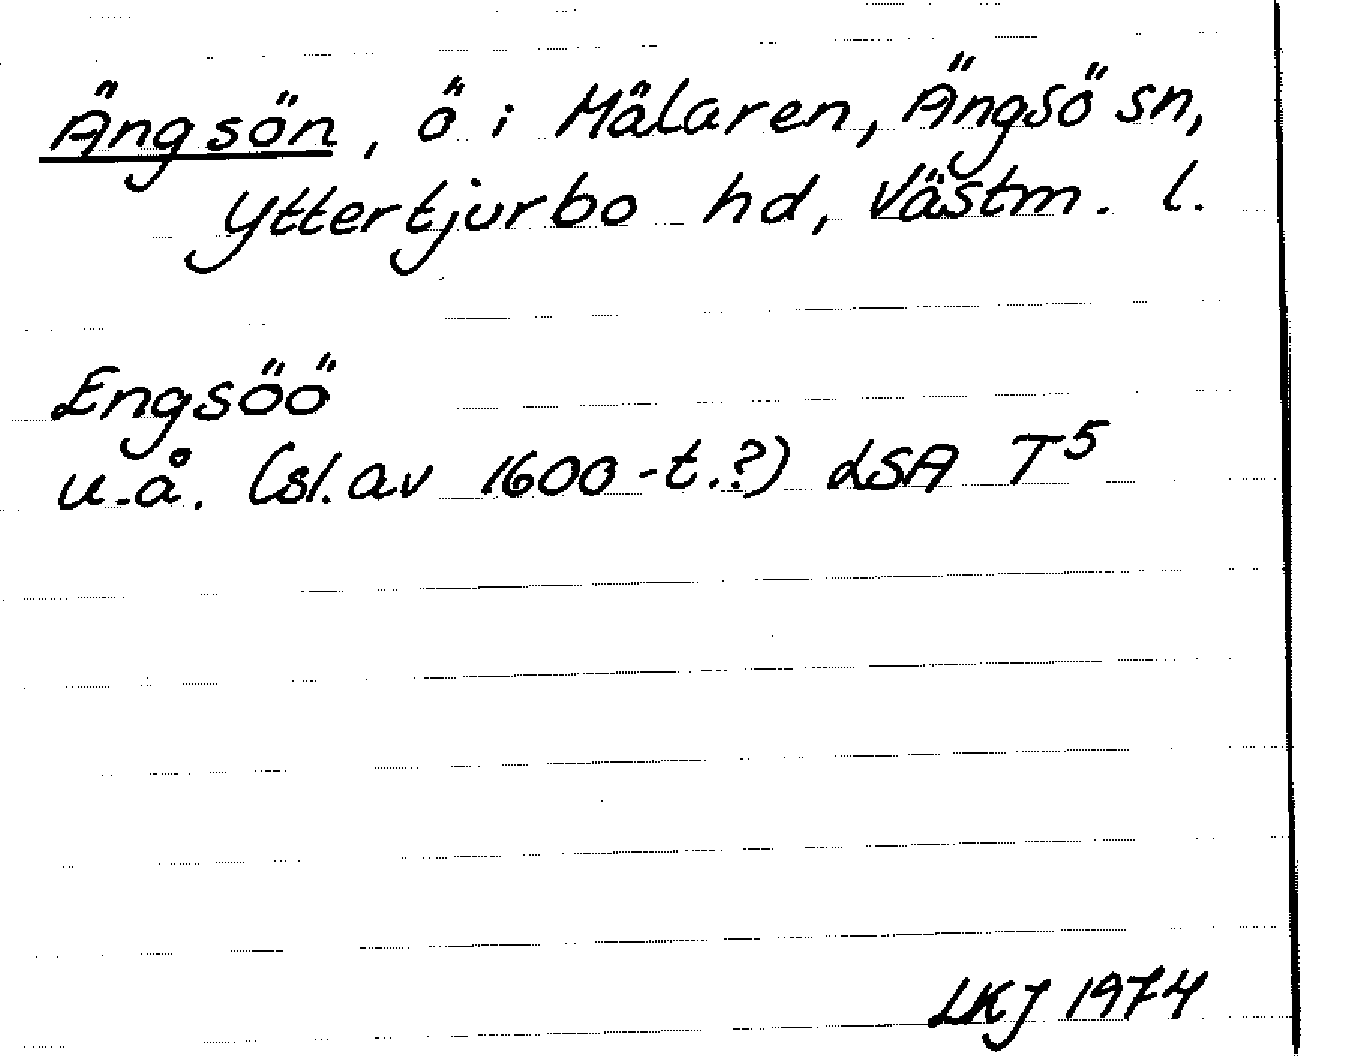 Ängsön, ö i Mälaren, Ängsö sn,
Yttertjurbo hd, Västm. l.
Engsöö
u.å. (sl. av 1600-t.?) LSA T⁵
LKJ 1974